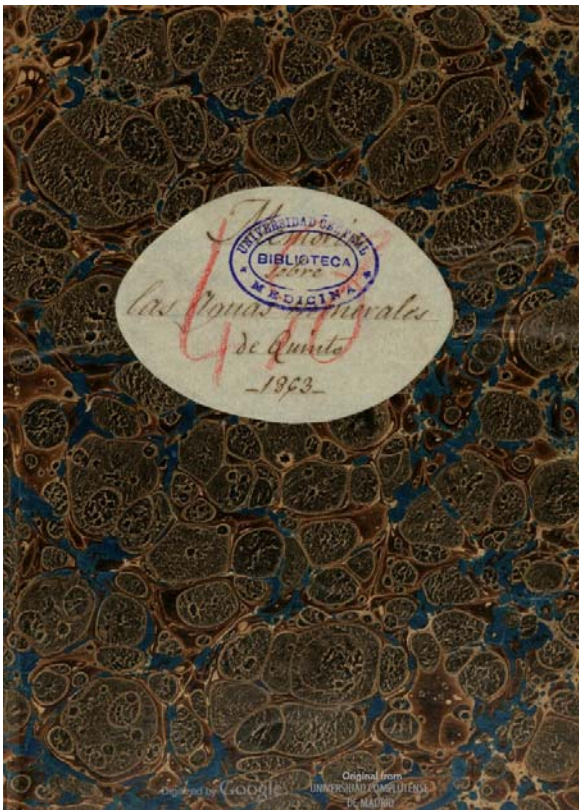 Memoria
UNIVERSIDAD CENTRAL
BIBLIOTECA
sobre
MEDICINA
las Aguas minerales
de Quinto
Digitized by Google
Original from
UNIVERSIDAD COMPLUTENSE
DE MADRID